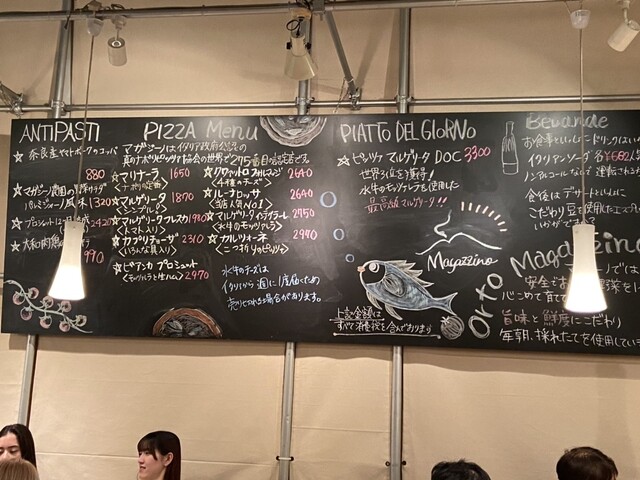 ANTIPASTI
☆ 奈良産ヤマトポークのコッパ
880
☆ マガジーノ農園の
パルミジャーノ風味 1320
☆ プロシュート
2420
☆ 大和肉鶏の
990
PIZZA Menu
マガジーノはイタリア政府公認の
真のナポリピッツァ協会の世界で275番目の認定店です。
☆ マリナーラ 1650
<ナポリの定番>
☆ マルゲリータ 1870
<シンプル>
☆ マルゲリータ フレスカ 1980
<トマト入り>
☆ カプリチョーザ 2310
<いろんな具入り>
☆ ビアンカ プロシュート 2970
<モッツァレラと生ハム>
☆ クワットロ フォルマッジ 2640
<4種のチーズ>
☆ ルーナロッサ 2640
<当店人気No1>
☆ マルゲリータ インテグラーレ 2750
<水牛のモッツァレラ>
☆ カルツォーネ 2970
<二つ折りのピッツァ>
水牛のチーズは
イタリアから週に1度届くため
売り切れる場合があります。
PIATTO DEL GIORNO
☆ ピッツァ マルゲリータ DOC 3300
世界3位を獲得!
水牛のモッツァレラを使用した
最高級マルゲリータ!!
Magazzino
上記金額は
すべて消費税を含んでおります
Bevande
お食事といっしょにドリンクはいかが
イタリアンソーダ 各¥682
ノンアルコールなので 運転される方
食後はデザートといっしょに
こだわり豆を使用したエスプレッソ
いかがですか
Orto Magazzino
安全でお
心こめて育て
旨味と鮮度にこだわり
毎朝、採れたてを使用してい